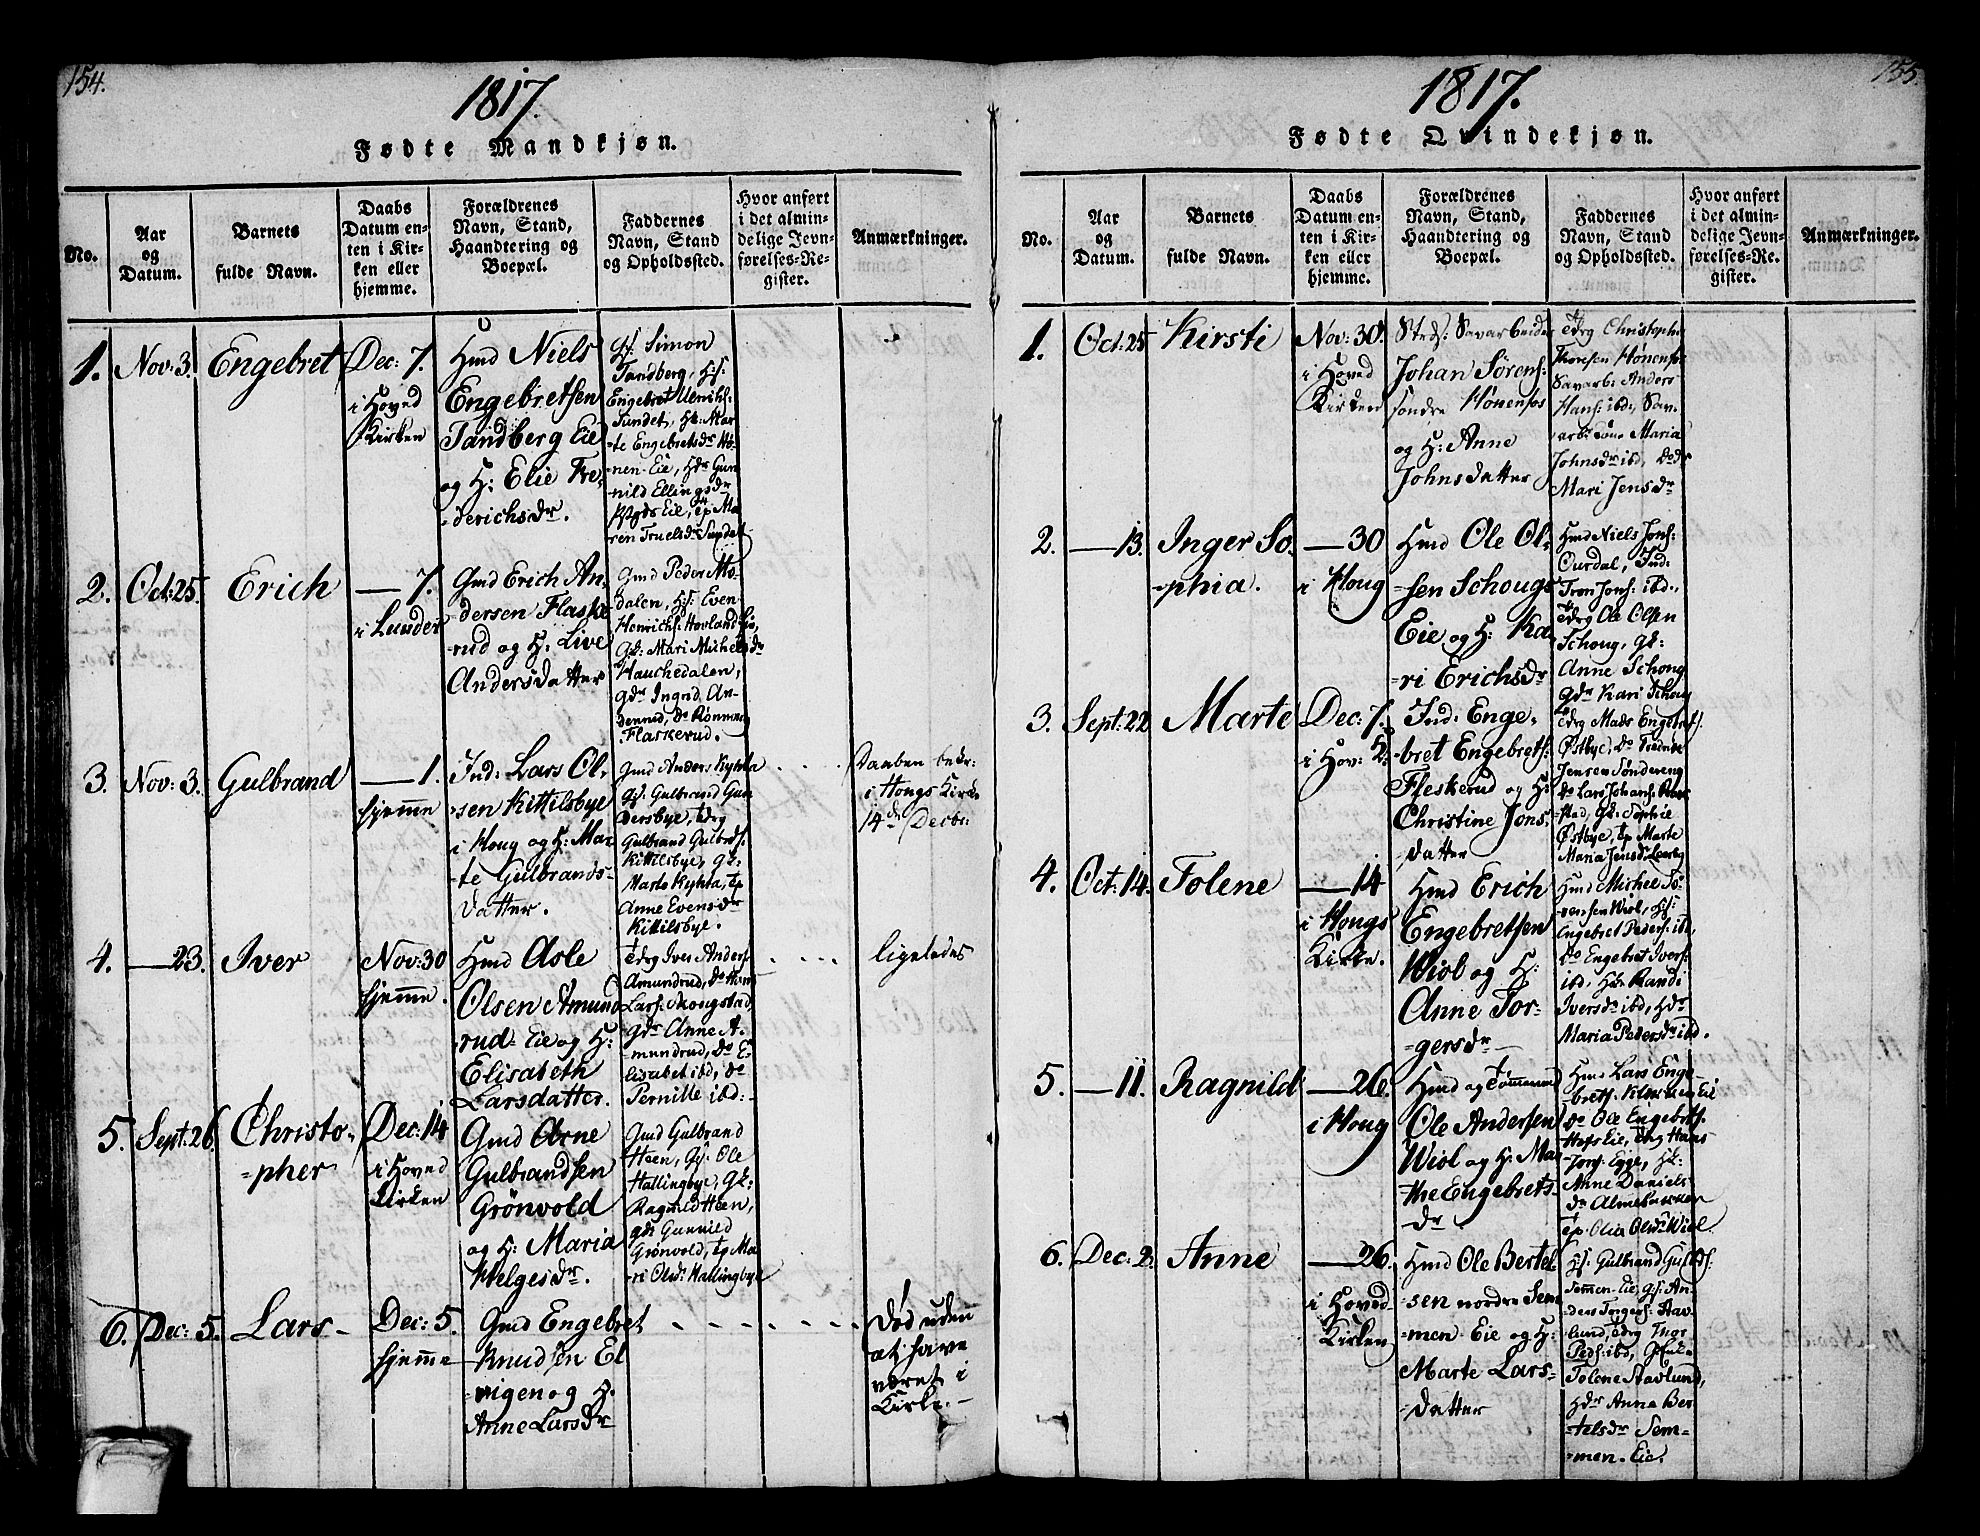 154.
1817.
Fødte Mandkjøn.
No.
Aar
og
Datum.
Barnets
fulde Navn.
Daabs
Datum en-
ten i Kir-
ken eller
hjemme.
Forældrenes
Navn, Stand,
Haandtering og
Boepæl.
Faddernes
Navn, Stand
og Opholdssted.
Hvor anført
i det almin-
delige Jevn-
førelses-Re-
gister.
Anmærkninger.
1.
Nov: 3.
Engebret
Dec: 7.
i Hoved
Kirken
Hmd Niels
Engebretsen
Tandberg Eie
og H: Elie Fre-
derichsdr.
Gf. Simon
Tandberg, Hf:
Engebret Ulrichs:
Sundet, Hk: Mar-
te Engebretsdr Hø-
nen-Eie, Hdr Gun
nild Ellingsdr
Eie, Ep Ma
ren Truelsdr Sundet
2.
Oct: 25.
Erich
— 7.
i Lunder
Gmd Erich An-
dersen Flaske
rud og H. Live
Andersdatter
Gmd Peder Mo-
dalen, Hf: Even
Henrichs: Hovland Eie,
Gk: Mari Michelsdr
Hauchedalen,
Gdr Ingrid An-
denrud, Do Rønnaug
Flaskerud.
3.
Nov: 3.
Gulbrand
— 1.
hjemme
Ind: Lars Ol-
sen Kittilsbye
i Houg og H: Mar
te Gulbrands-
datter.
Gmd Anders Kyhta
Gf. Gulbrand Gun
dersbye, Edrg
Gulbrand Gulbrs.
Kittilsbye, Gk:
Marte Kyhta, Ep
Anne Evensdr
Kittilsbye.
Daaben bekr:
i Hougs Kirke
14de Decbr:
4.
— 23.
Iver
Nov: 30
hjemme.
Hmd Asle
Olsen Amund
rud- Eie og H:
Elisabeth
Larsdatter.
Edrg Iver Anders
Amundrud, Do Hans
Lars: Skougstad,
Gdr Anne A-
mundrud, Do E-
lisabet ibd, Do
Pernille ibd:
ligeledes
5.
Sept: 26.
Christo-
pher
Dec: 14
i Hoved
Kirken
Gmd Arne
Gulbrandsen
Grönvold
og H: Maria
Helgesdr.
Gmd Gulbrand
Heen, Gf. Ole
Hallingbye, Gk:
Ragnild Heen,
Gdr Gunnild
Grønvold, Ep Ma
ri Olsdr Hallingbye
6.
Dec: 5.
Lars
Dec: 5.
hjemme
Gmd Engebret
Knudsen El
vigen og H.
Anne Larsdr
Død uden
at have
været i
Kirke.
155.
1817.
Fødte Qvindekjøn.
No.
Aar
og
Datum.
Barnets
fulde Navn.
Daabs
Datum en-
ten i Kir-
ken eller
hjemme.
Forældrenes
Navn, Stand,
Haandtering og
Boepæl.
Faddernes
Navn, Stand
og Opholdssted.
Hvor anført
i det almin-
delige Jevn-
førelses-Re-
gister.
Anmærkninger.
1.
Oct: 25
Kirsti
Nov: 30.
i Hoved
Kirken
Savarbeider
Johan Sörens:
søndre Hönenfos
og H: Anne
Johnsdatter
Edrg Christopher
Thoresen Hönenfos
Savarb: Anders
Hans: ibd, Sav-
arb: Maria
Johnsdr ibd, Do dr
Mari Jensdr
2.
— 13.
Inger So-
phia.
— 30
i Houg
Hmd Ole Ol-
sen Schougs
Eie og H: Ka
ri Erichsdr
Hmd Niels Jons:
Ourdal, Ind:
Tron Jons: ibd.,
Edrg Ole Olsen
Schoug, Gk:
Anne Schoug
Gdr Kari Schoug
3.
Sept: 22
Marte
Dec: 7.
i Hov: K.
Ind: Enge-
bret Engebrets:
Fleskerud og H:
Christine Jons-
datter
Edrg Mads Engebrets.
Østbye, Do
Jensen Sondereng
Do Lars Johans:
Gk: Sophie
Østbye, Ep Marte
Maria Jensdr
4.
Oct: 14.
Tolene
— 14
i Hougs
Kirke.
Hmd Erich
Engebretsen
Wiol og H:
Anne Tor-
gersdr
Hmd Michel Sö-
rensen Wiol, Hf:
Engebret Peders: ibd,
Do Engebret Ivers:
ibd, Hk: Randi
Iversdr ibd, Hdr
Maria Pedersdr ibd.
5.
— 11.
Ragnild
— 26.
i Houg
Hmd og Tömmermd
Ole Andersen
Wiol og H: Ma
the Engebrets-
dr
Hmd Lars Enge-
brets: Klekken Eie
Do Ole Engebrets.
Hofs Eie, Edrg Hans
Jons: Egge, Hk:
Anne Daniels
dr Almebakken
Ep. Olia Olsdr Wiol
6.
Dec: 2.
Anne
— 26.
i Hoved-
Kirken
Hmd Ole Bertel-
sen nordre Sem-
men- Eie og H:
Marte Lars-
datter
Hf. Gulbrand Gulbrs.
Semmen-Eie, Gf: An-
ders Torgers: Aav-
lund, Edrg Thor
Peds: ibd,
Tolene Aavlund,
Hdr Anne Ber
telsdr Sem-
men-Eie.